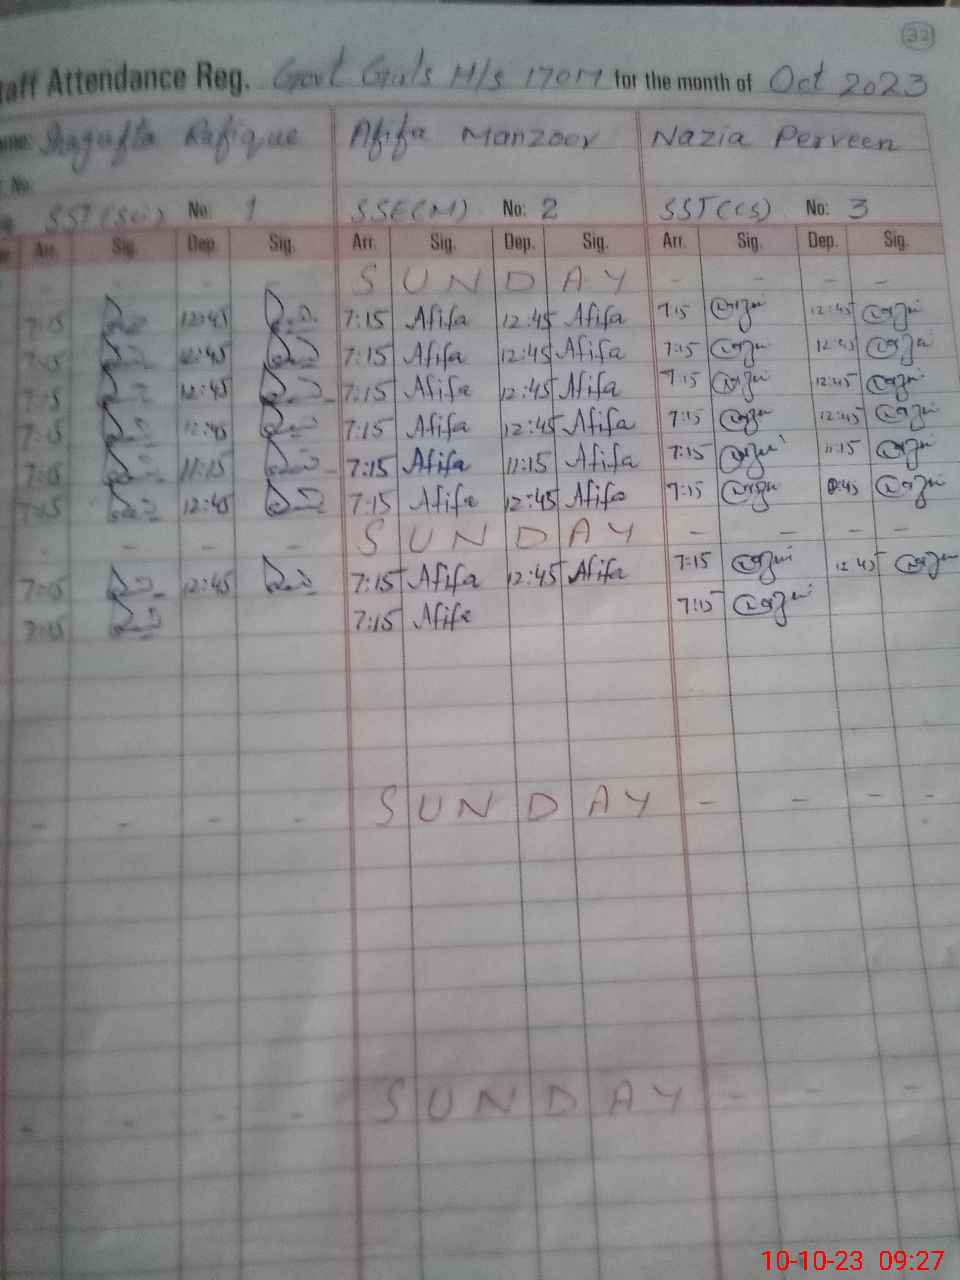 32
aff Attendance Reg. Govt Girls H/s 170M for the month of Oct 2023
ame: Shagufta Rafique Afifa Manzoor Nazia Perveen
. No.
SST(Sci) No: 1 SSE(M) No: 2 SST(CS) No: 3
Arr. Sig. Dep. Sig. Arr. Sig. Dep. Sig. Arr. Sig. Dep. Sig.
- - - S U N D A Y - - - -
7:15 12:45 7:15 Afifa 12:45 Afifa 7:15 12:45
7:15 12:45 7:15 Afifa 12:45 Afifa 7:15 12:45
7:15 12:45 7:15 Afifa 12:45 Afifa 7:15 12:45
7:15 12:45 7:15 Afifa 12:45 Afifa 7:15 12:45
7:15 11:15 7:15 Afifa 11:15 Afifa 7:15 11:15
7:15 12:45 7:15 Afifa 12:45 Afifa 7:15
- - - - S U N D A Y - - - -
7:15 12:45 7:15 Afifa 12:45 Afifa 7:15 12:45
7:15 7:15 Afifa 7:15
- - - - S U N D A Y - - - -
- - - - S U N D A Y - - -
10-10-23 09:27